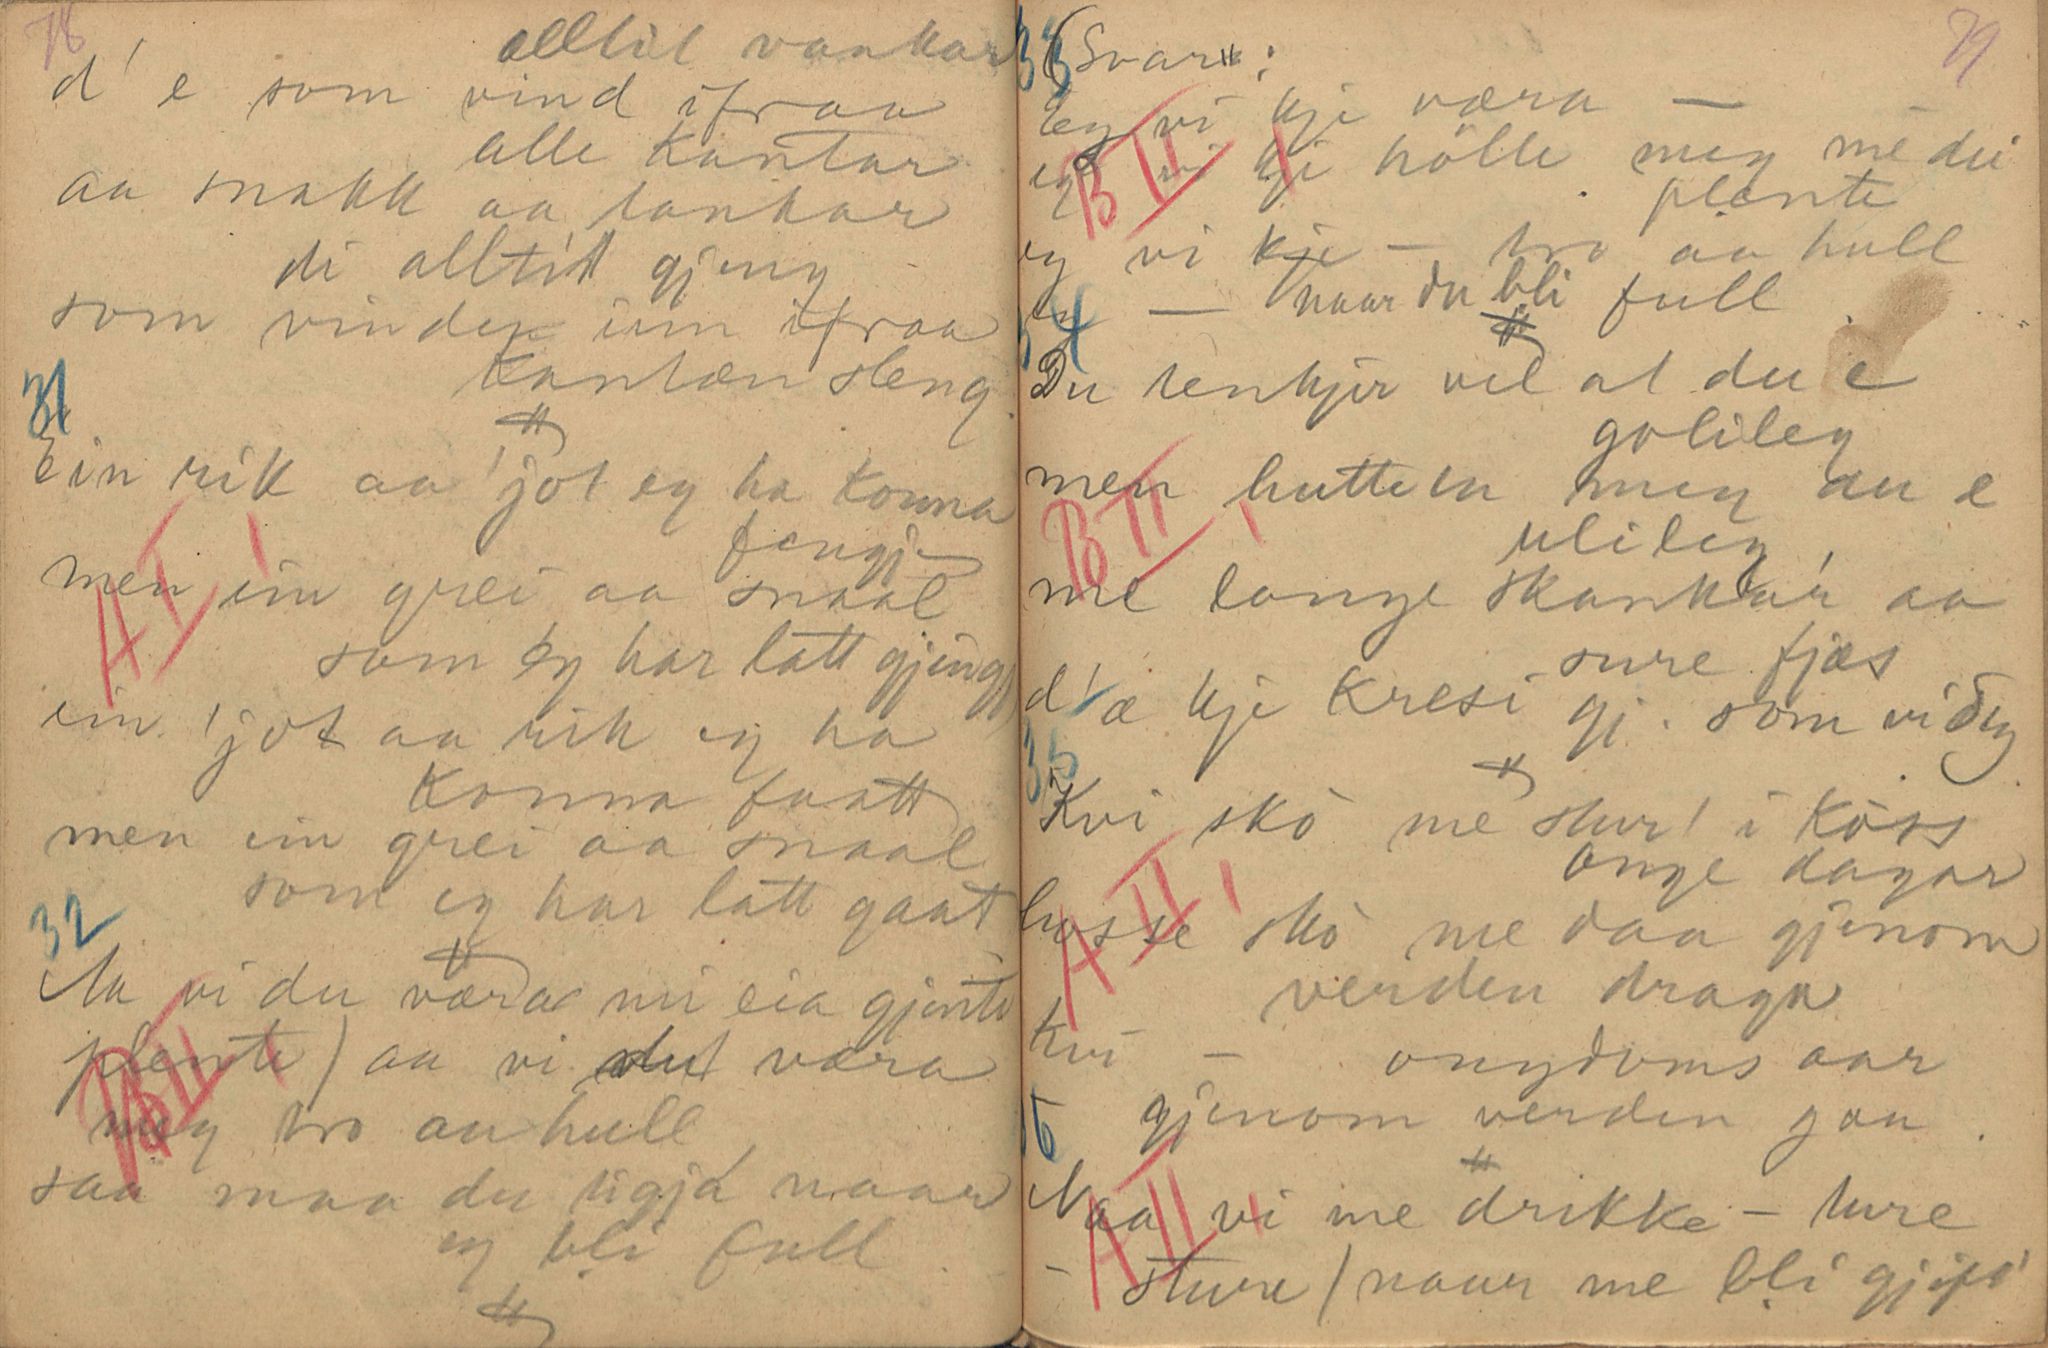 78
alltit vankar
d' e som vind ifraa
alle kantar
aa snakk aa tankar
di alltitt gjeng
som vinden inn ifraa
kantæn sleng
31
Ein rik aa jot eg ha konna
fengje
men ein grei aa snaal
som eg har latt gjengje
ein jot aa rik eg ha
konna faatt
men ein grei aa snaal
som eg har latt gaat
32
Aa vi du væra mi eia gjente
plente) aa vi du væra
meg tro au hull
saa maa du ligja naar
eg bli full
B II 1
A I 1
79
33 (Svar:
Eg vi kje væra —
eg vi kje hölle meg me dei
plente
eg vi kje — tro aa hull
— naar du bli full
B II 1
34
Du tenkjer vel at du e
golileg
men hutte tu meg du e
ulileg
me lange skankar aa
sure fjæs
d'æ kje kresi gj. som vi deg
B II 1
35
Kvi skò me stur' i köss
onge dagar
hosse skò me daa gjenom
verden draga
Kvi — ongdoms aar
gjenom verden gaa.
A II 1
36
Naa vi me drikke — ture
— sture / naar me bli gjift
A II 1